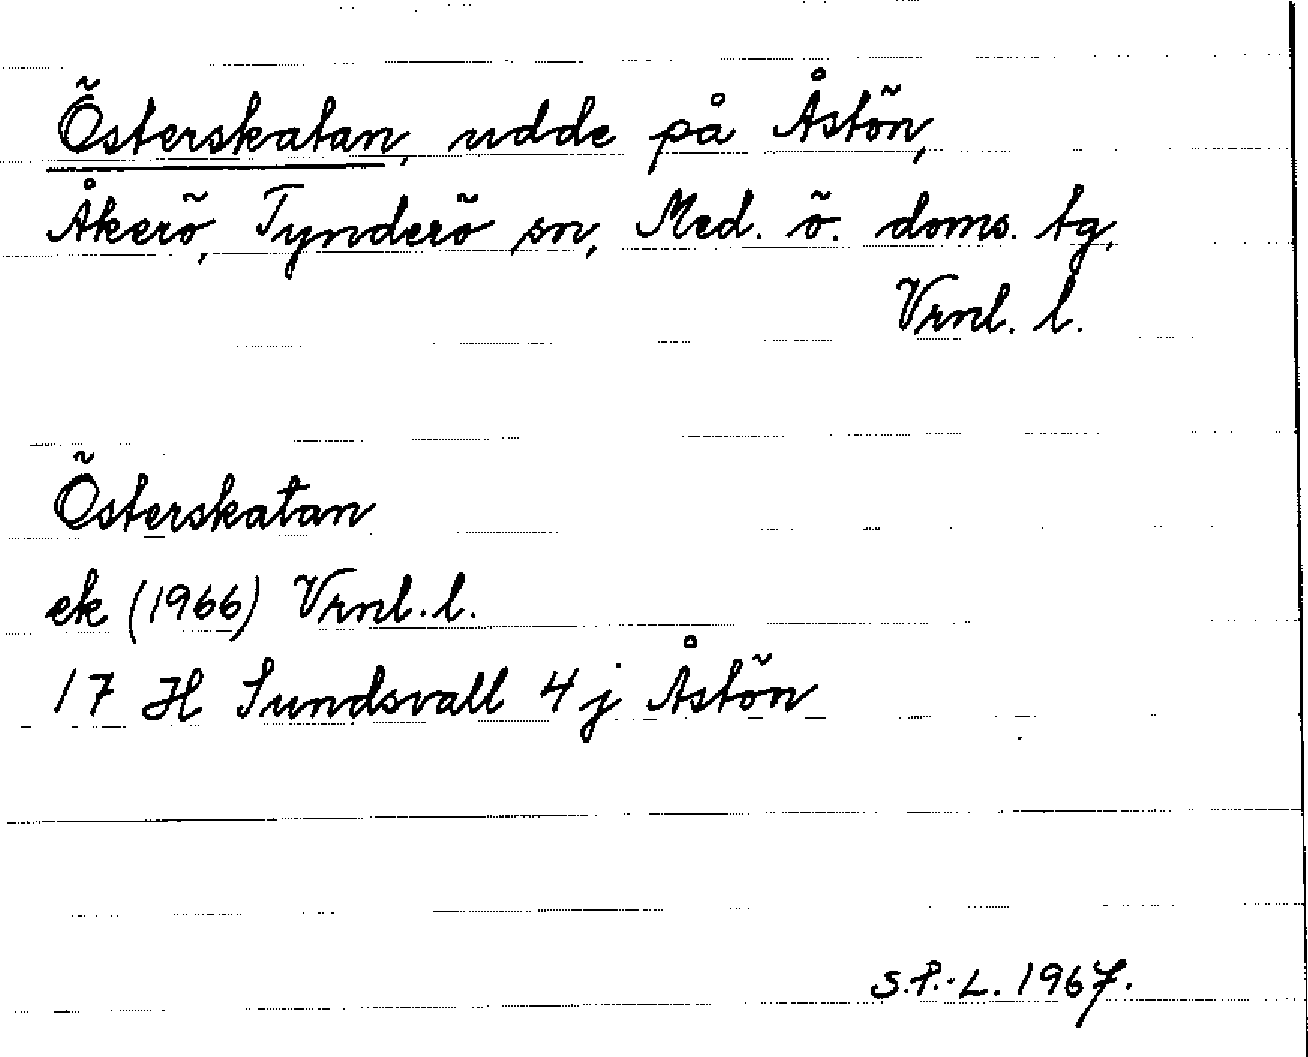 Österskatan, udde på Åstön,
Åkerö, Tynderö sn, Med. ö. doms. tg,
Vrnl. l.
Österskatan
ek (1966) Vrnl. l.
17 H Sundsvall 4 j Åstön
S.P.-L. 1967.